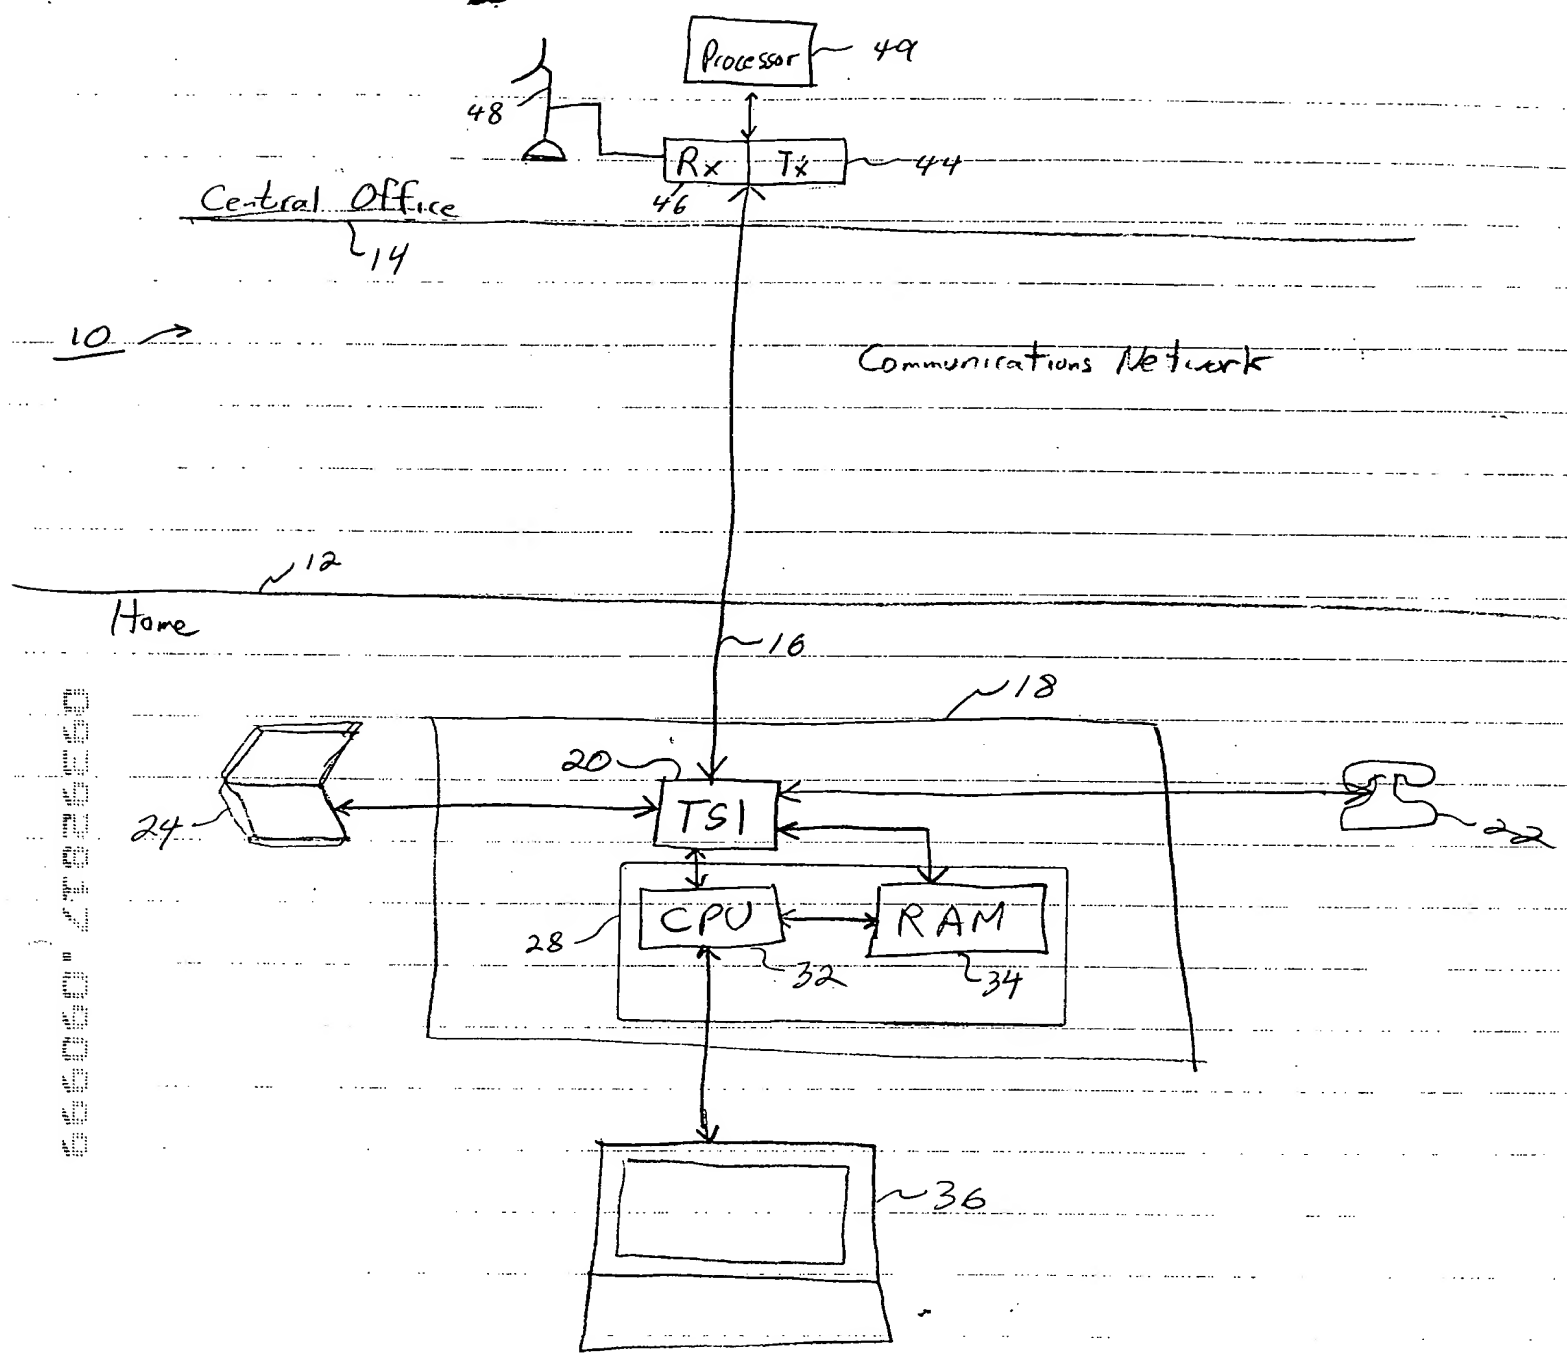 Processor
49
48
Rx
Tx
44
46
Central Office
14
10
Communications Network
12
Home
16
18
20
TSI
24
22
CPU
RAM
28
32
34
36